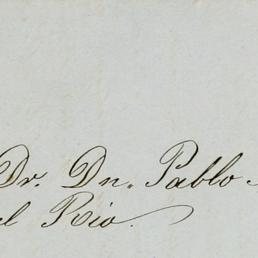 Dr. Dn. Pablo
el Rio